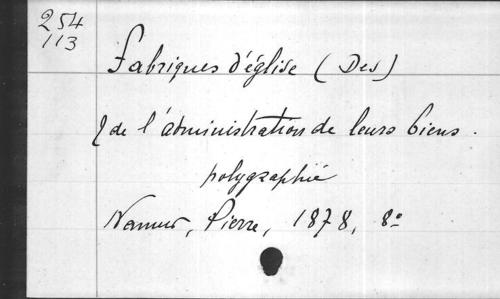 254
113
Fabriques d'église (Des)
& de l'administration de leurs biens.
polygraphié
Namur, Pierre, 1878, 8°